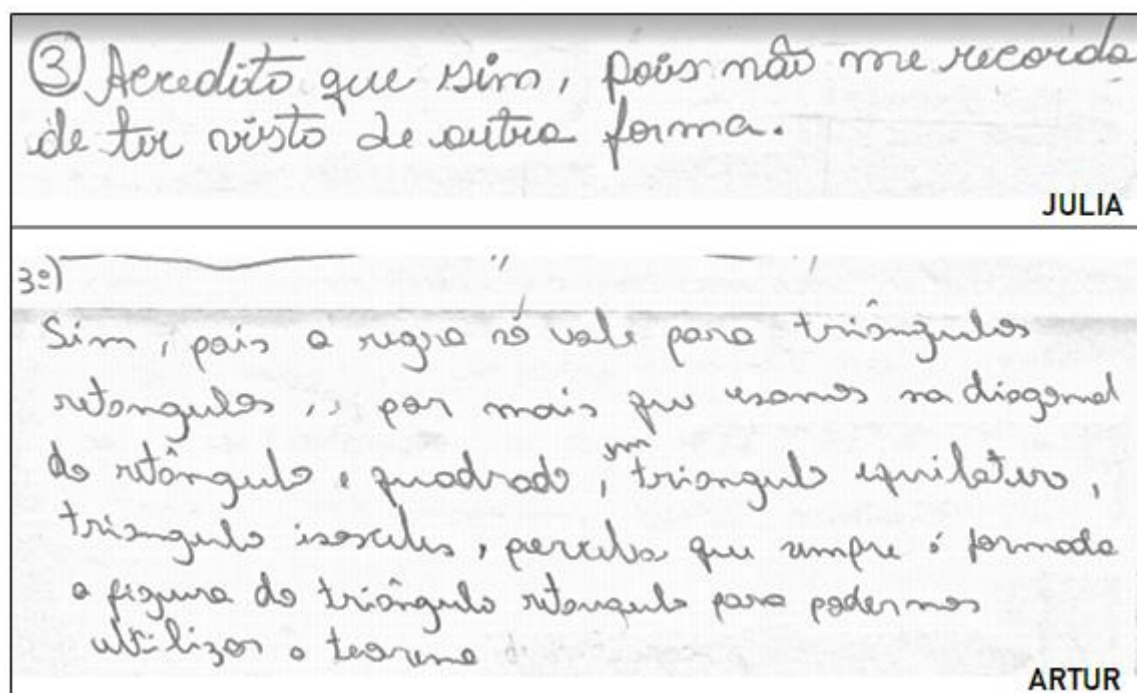 ③ Acredito que sim, pois não me recordo
de ter visto de outra forma.
JULIA
3º)
Sim, pois a regra só vale para triângulos
retangulos, e por mais que usamos na diagonal
do retângulo e quadrado, em triangulo equilatero,
triangulo isosceles, percebo que sempre é formada
a figura do triângulo retangulo para podermos
utilizar o teorema
ARTUR